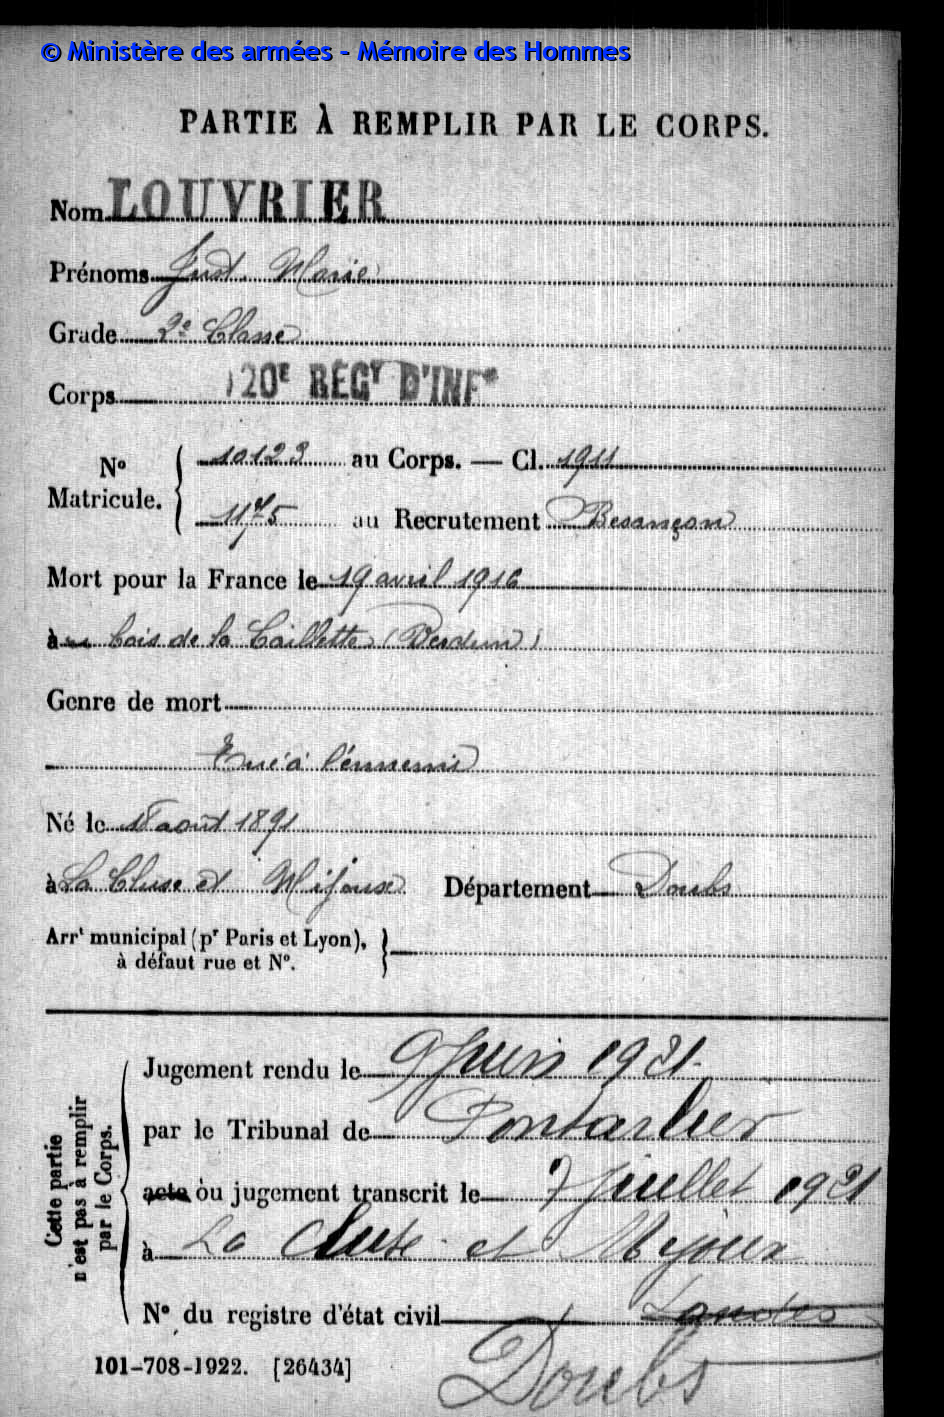 © Ministère des armées - Mémoire des Hommes
PARTIE À REMPLIR PAR LE CORPS.
Nom LOUVRIER
Prénoms Just Marie
Grade 2e Classe
Corps 120E RÉGT D'INFie
No Matricule. { 10123 au Corps. — Cl. 1911
1175 au Recrutement Besançon
Mort pour la France le 19 avril 1916
à bois de la Caillette (Verdun)
Genre de mort
Tué à l'ennemi
Né le 18 août 1891
à La Cluse et Mijoux Département Doubs
Arrt municipal (pr Paris et Lyon),
à défaut rue et No.
Cette partie
n'est pas à remplir
par le Corps.
Jugement rendu le 9 Juin 1921
par le Tribunal de Pontarlier
acte ou jugement transcrit le 7 juillet 1921
à La Cluse et Mijoux
No du registre d'état civil Landes
Doubs
101-708-1922. [26434]